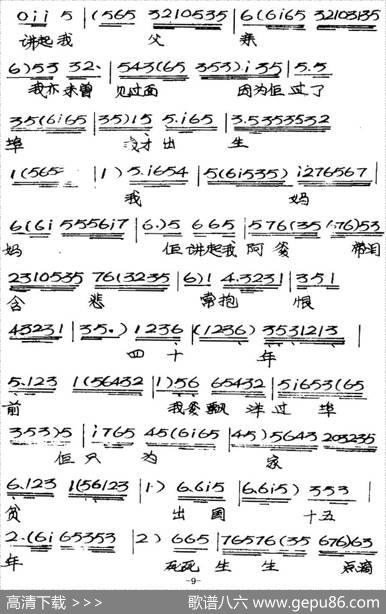 0 i i 5 | (565 3210535 | 6(6i65 32103135
讲起我 父 亲
6)53 32. | 543(65 353)i35 | 5.5
我亦未曾 见过面 因为佢过了
35(6i65 | 35)15 5.i65 | 3.5353532
埠 没才出 生
1(565 | 1) 5.i654 | 5(6i535) i276567 |
我 妈
6(6i 5556i7 | 6.)5 665 | 576(35 i76)53
妈 佢讲起我阿爹 带泪
2310535 76(3235 | 6)1 4.3231 | 351 |
含 悲 常抱 恨
43231 | 35.) 1236 | (1236) 3531213 |
四 十 年
5.123 1(56432 | 1)56 65432 | 5i653(65
前 我爹飘洋过埠
353)5 | i765 45(6i65 | 45)5643 203235
佢只为 家
6.123 1(56123 | 1) 6.6i5 | 6.6i5) 353 |
贫 出国 十五
2.(6i 65353 | 2) 665 | 76576(35 676)63
年 死死生生 点滴
-9-
高清下载 >>> 歌谱八六 www.gepu86.com